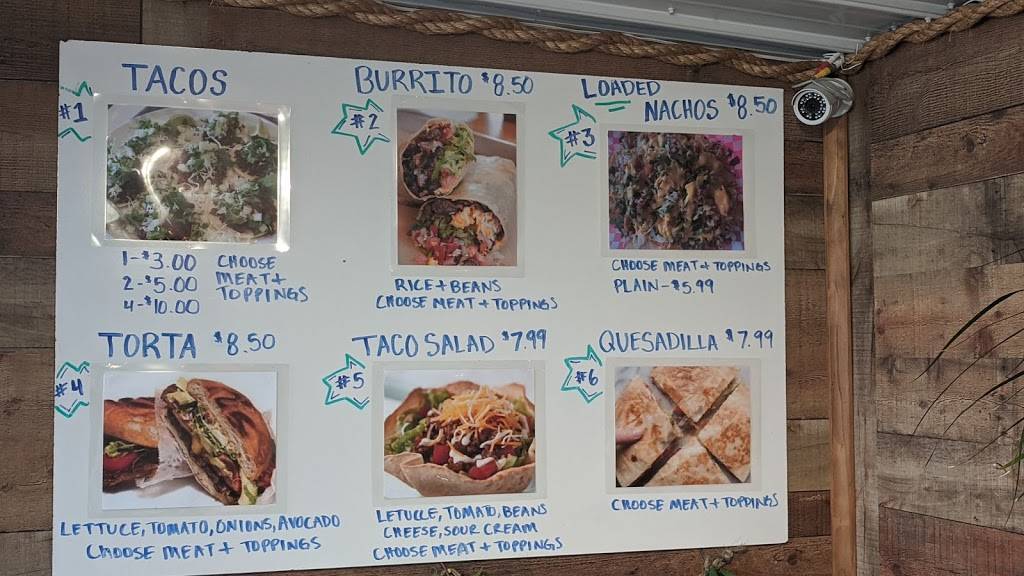 TACOS
#1
1-$3.00 CHOOSE
2-$5.00 MEAT+
4-$10.00 TOPPINGS
BURRITO $8.50
#2
RICE+BEANS
CHOOSE MEAT+TOPPINGS
LOADED
NACHOS $8.50
#3
CHOOSE MEAT+TOPPINGS
PLAIN-$5.99
TORTA $8.50
#4
LETTUCE, TOMATO, ONIONS, AVOCADO
CHOOSE MEAT+ TOPPINGS
TACO SALAD $7.99
#5
LETUCLE, TOMATO, BEANS
CHEESE, SOUR CREAM
CHOOSE MEAT+TOPPINGS
QUESADILLA $7.99
#6
CHOOSE MEAT+TOPPINGS